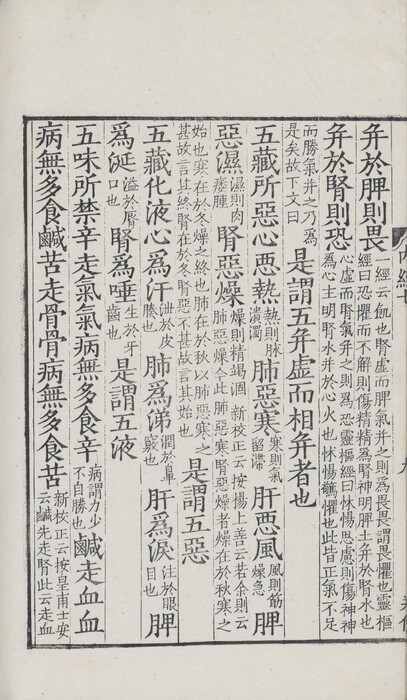 并於脾則畏一經云飢也腎虛而脾氣并之則爲畏畏謂畏懼也靈樞經曰恐懼而不解則傷精精爲腎神明脾土并於腎水也
并於腎則恐心虛而腎氣并之則爲恐靈樞經曰怵惕思慮則傷神神爲心主明腎水并於心火也怵惕驚懼也此皆正氣不足
而勝氣并之乃爲是矣故下文曰是謂五并虛而相并者也
五藏所惡心悪熱熱則脉潰濁肺惡寒寒則氣留滯肝悪風風則筋燥急脾
惡濕濕則肉痿腫腎惡燥燥則精竭涸新校正云按楊上善云若余則云肺惡燥今此肺惡寒腎惡燥者燥在於秋寒之
始也寒在於冬燥之終也肺在於秋以肺惡寒之甚故言其終腎在於冬腎惡不甚故言其始也是謂五惡
五藏化液心爲汗泄於皮腠也肺爲涕潤於鼻竅也肝爲淚注於眼目也脾
爲涎溢於脣口也腎爲唾生於牙齒也是謂五液
五味所禁辛走氣氣病無多食辛病謂力少不自勝也鹹走血血
病無多食鹹苦走骨骨病無多食苦新校正云按皇甫士安云鹹先走腎此云走血